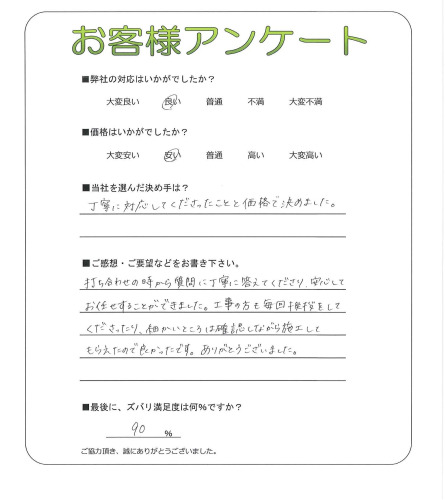 お客様アンケート
■弊社の対応はいかがでしたか？
大変良い 良い 普通 不満 大変不満
■価格はいかがでしたか？
大変安い 安い 普通 高い 大変高い
■当社を選んだ決め手は？
丁寧に対応してくださったことと価格で決めました。
■ご感想・ご要望などをお書き下さい。
打ち合わせの時から質問に丁寧に答えてくださり、安心して
お任せすることができました。工事の方も毎回挨拶をして
くださったり、細かいところは確認しながら施工して
もらえたので良かったです。ありがとうございました。
■最後に、ズバリ満足度は何％ですか？
90 ％
ご協力頂き、誠にありがとうございました。